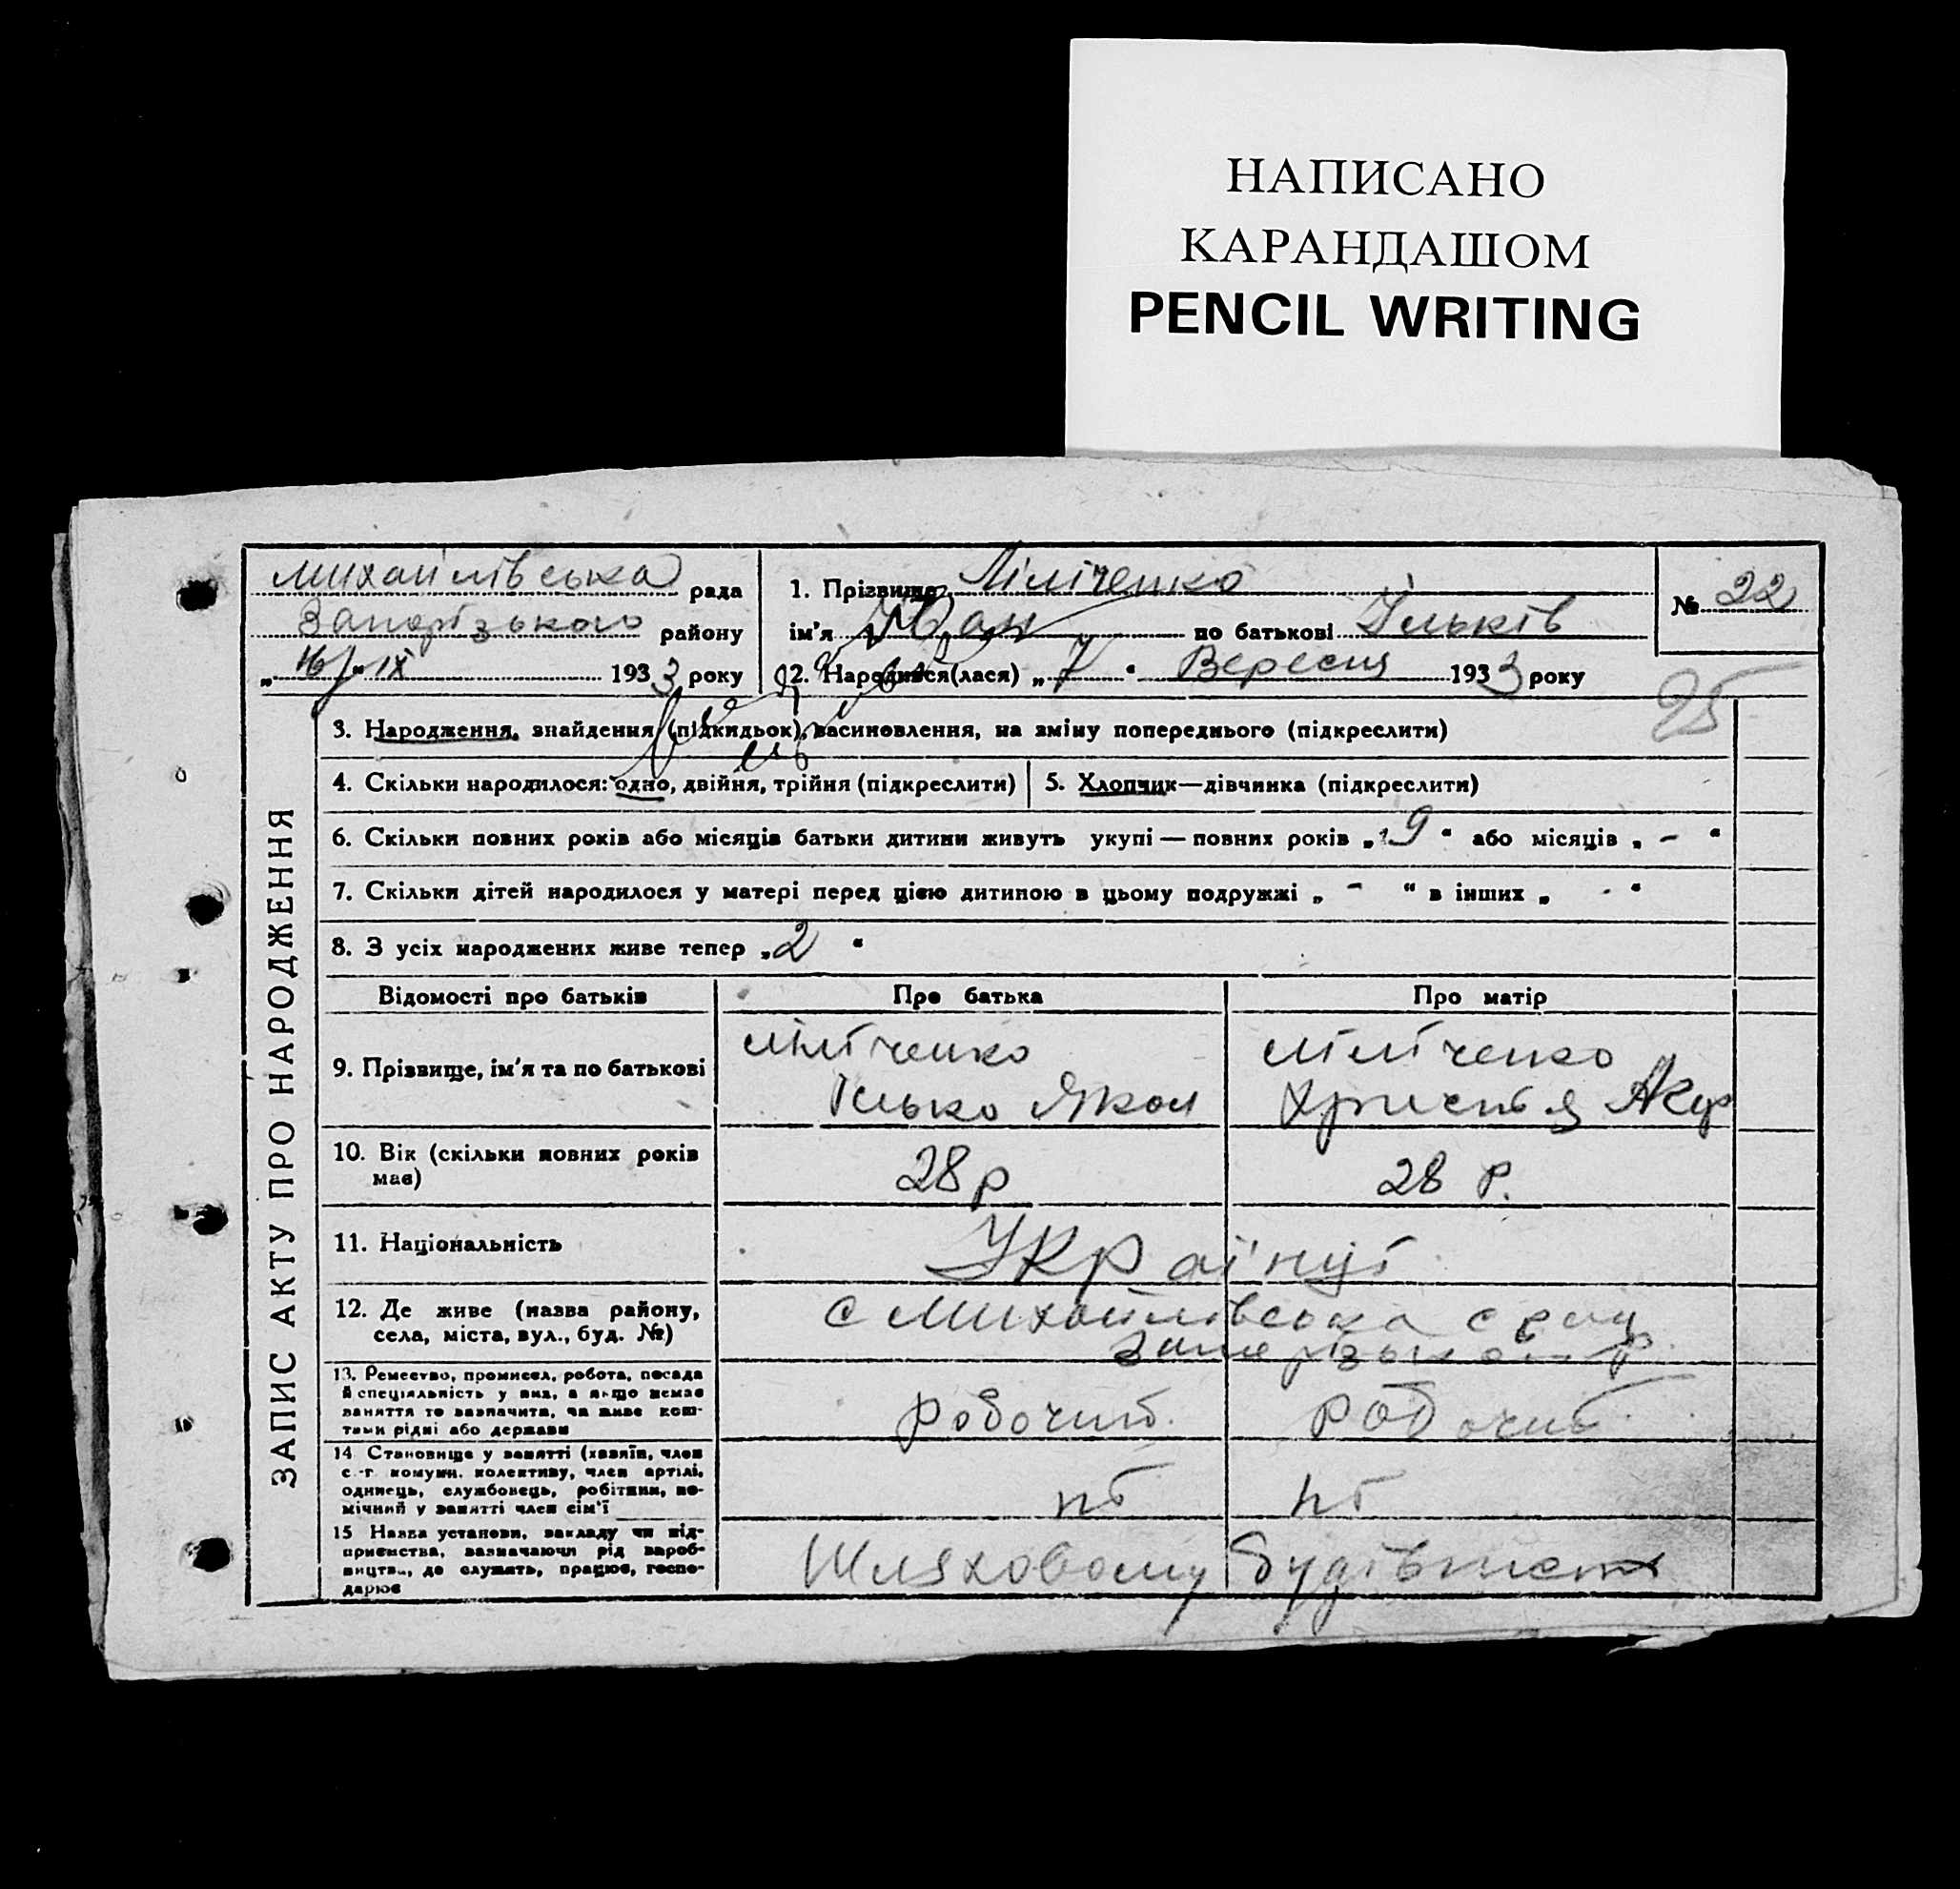 НАПИСАНО
КАРАНДАШОМ
PENCIL WRITING
Михайлівська рада
Запорізького району
„16/ІХ 1933 року
1. Прізвище Ліліченко
ім'я Іван по батькові Ільків
2. Народився(лася) „7" Вересня 1933 року
№ 22
25
ЗАПИС АКТУ ПРО НАРОДЖЕННЯ
3. Народження, знайдення (підкидьок), васиновлення, на зміну попереднього (підкреслити)
4. Скільки народилося: одно, двійня, трійня (підкреслити)
5. Хлопчик—дівчинка (підкреслити)
6. Скільки повних років або місяців батьки дитини живуть укупі — повних років „9" або місяців „-"
7. Скільки дітей народилося у матері перед цією дитиною в цьому подружжі „-" в інших „-"
8. З усіх народжених живе тепер „2"
Відомості про батьків Про батька Про матір
9. Прізвище, ім'я та по батькові
Ліліченко
Ілько Яков
Ліліченко
Христья Акур
10. Вік (скільки повних років має)
28 р
28 р.
11. Національність
Українці
12. Де живе (назва району, села, міста, вул., буд. №)
с Михайлівська с рад
13. Ремество, промисел, робота, посада й спеціяльність у них, а якщо немає заняття то зазначити, чи живе коштами рідні або держави
робочий
робочий
14 Становище у занятті (хазяїн, член с.-г. комуни, колективу, член артілі, одинець, службовець, робітник, помічний у занятті член сім'ї
15 Назва установи, закладу чи підприємства, зазначаючи рід виробництва, де служить, працює, господарює
Шляховому будівництві